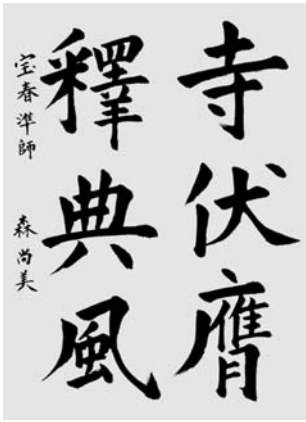 寺伏膺
釋典風
宝春準師 森尚美